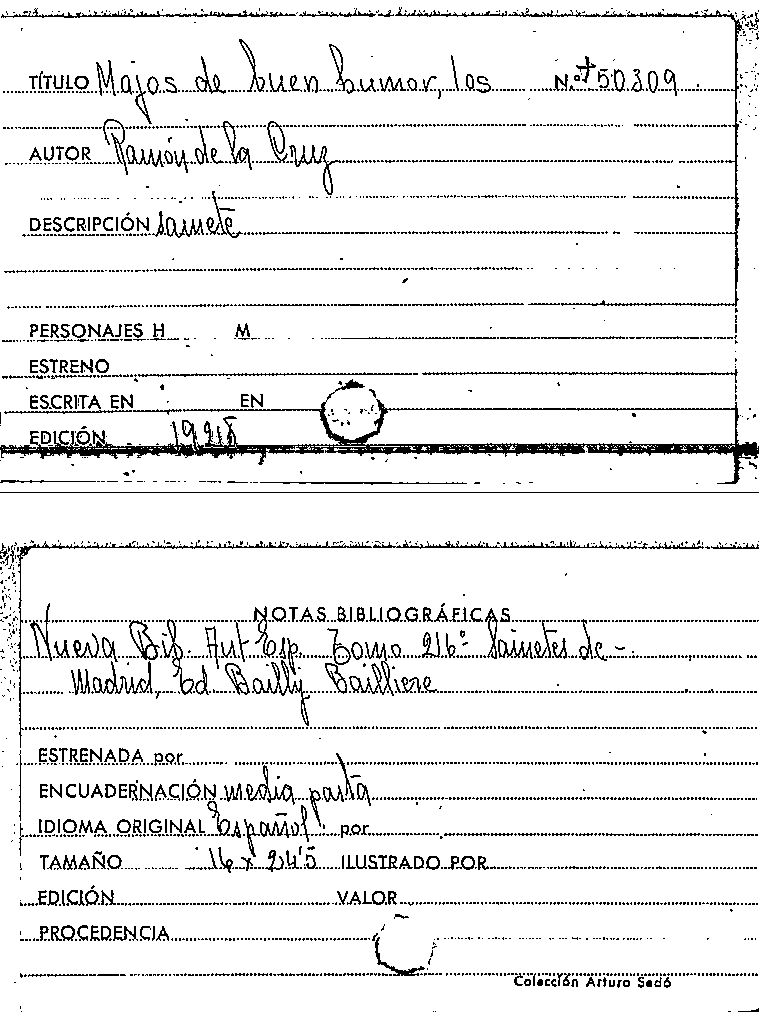 TÍTULO Majos de buen humor, los N.º 50309
AUTOR Ramón de la Cruz
DESCRIPCIÓN Sainete
PERSONAJES H M
ESTRENO
ESCRITA EN EN
EDICIÓN
NOTAS BIBLIOGRÁFICAS
Nueva Bib. Aut. Esp. Tomo Sainetes de -.
Madrid, Ed. Bailly Bailliere
ESTRENADA por
ENCUADERNACIÓN media pasta
IDIOMA ORIGINAL Español por
TAMAÑO 16 x 24'5 ILUSTRADO POR
EDICIÓN VALOR
PROCEDENCIA
Colección Arturo Sedó